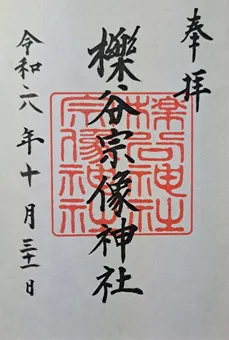 奉拝
櫟谷宗像神社
櫟谷神社
宗像神社
令和六年十月三十一日